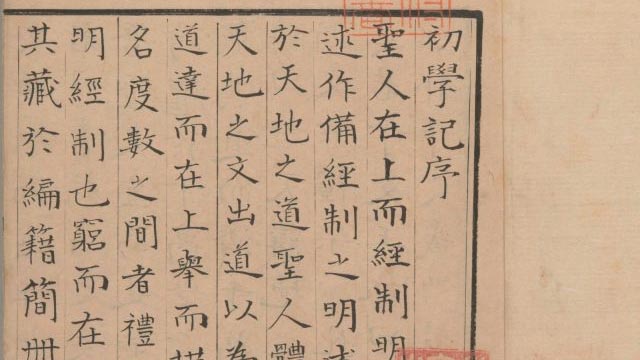 初學記序
聖人在上而經制明
述作備經制之明述
於天地之道聖人體
天地之文出道以為
道達而在上舉而措
名度數之間者禮
明經制也窮而在
其藏於編籍簡冊